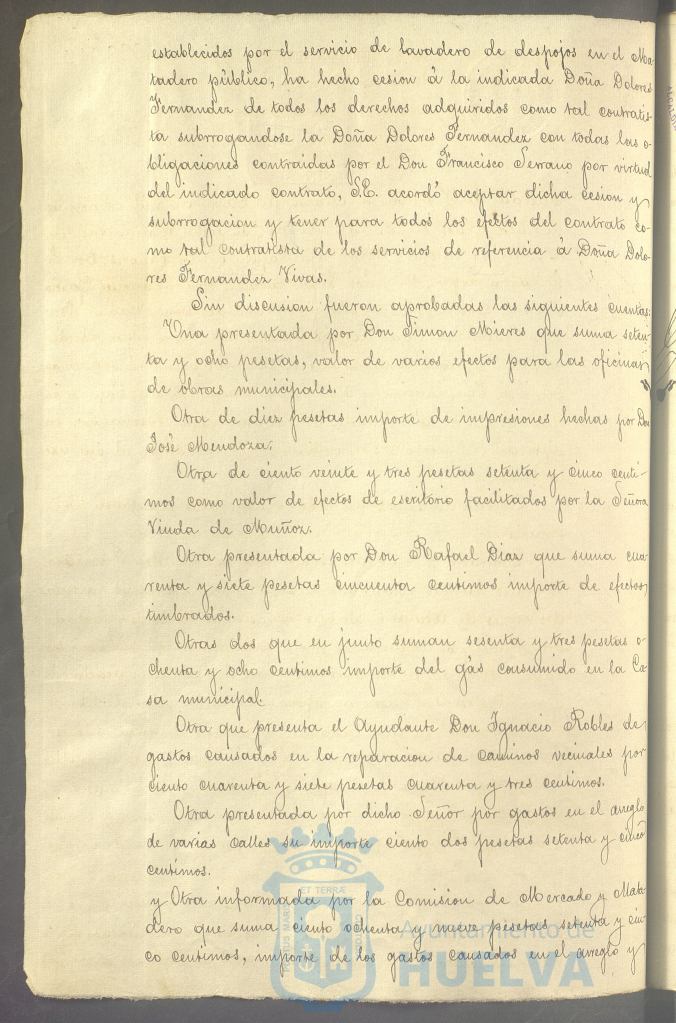 establecidos por el servicio de lavadero de despojos en el Ma-
tadero público, ha hecho cesion á la indicada Doña Dolores
Fernandez de todos los derechos adquiridos como tal contratis-
ta subrrogandose la Doña Dolores Fernandez con todas las o-
bligaciones contraidas por el Don Francisco Serrano por virtud
del indicado contrato, S.E. acordó aceptar dicha cesion y
subrrogacion y tener para todos los efectos del contrato co-
mo tal contratista de los servicios de referencia á Doña Dolo-
res Fernandez Vivas.
Sin discusion fueron aprobadas las siguientes cuentas:
Una presentada por Don Simon Mieres que suma seten-
ta y ocho pesetas, valor de varios efectos para las oficinas
de obras municipales.
Otra de diez pesetas importe de impresiones hechas por Don
José Mendoza.
Otra de ciento veinte y tres pesetas setenta y cinco centi-
mos como valor de efectos de escritorio facilitados por la Señora
Viuda de Muñoz.
Otra presentada por Don Rafael Diaz que suma cua-
renta y siete pesetas cincuenta centimos importe de efectos
timbrados.
Otras dos que en junto suman sesenta y tres pesetas o-
chenta y ocho centimos importe del gás consumido en la Ca-
sa municipal.
Otra que presenta el Ayudante Don Ignacio Robles de
gastos causados en la reparacion de caminos vecinales por
ciento cuarenta y siete pesetas cuarenta y tres centimos.
Otra presentada por dicho Señor por gastos en el arreglo
de varias calles su importe ciento dos pesetas setenta y cinco
centimos.
y Otra informada por la Comision de Mercado y Mata-
dero que suma ciento ochenta y nueve pesetas setenta y cin-
co centimos, importe de los gastos causados en el arreglo y
ET TERRÆ
Ayuntamiento de
HUELVA